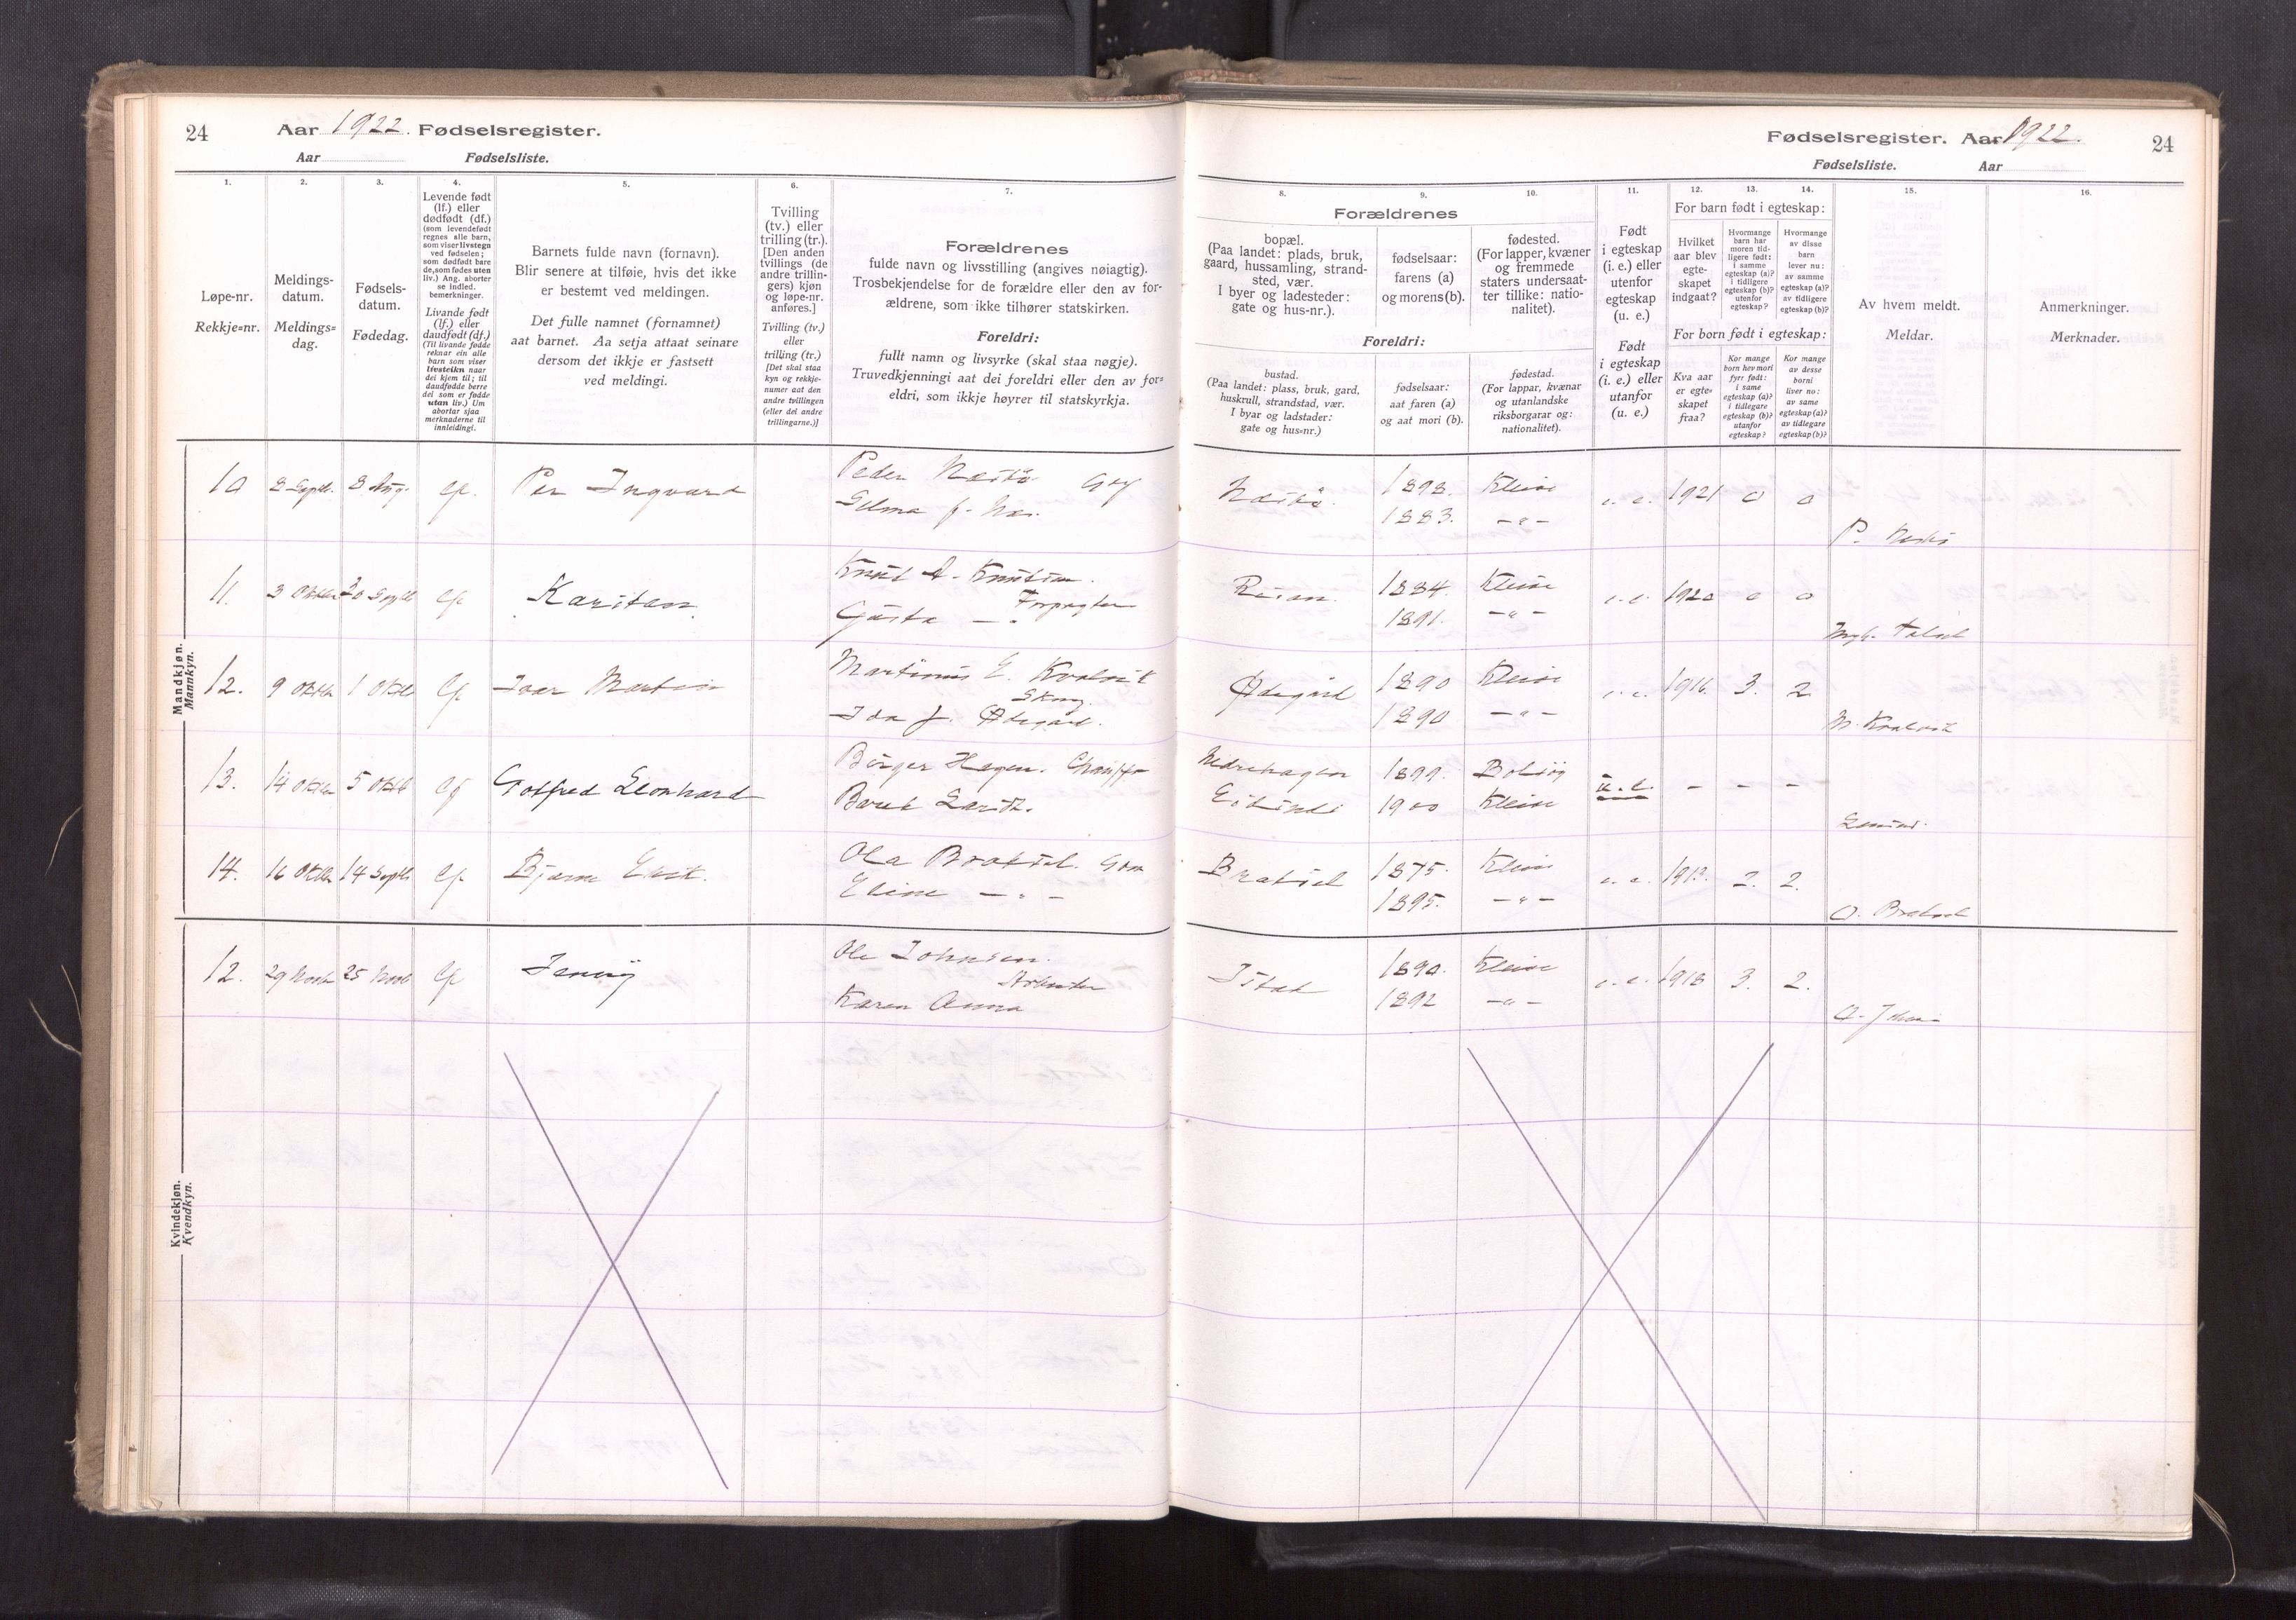 24
Aar 1922. Fødselsregister.
Aar
Fødselsliste.
1.
2.
3.
4.
5.
6.
7.
Løpe-nr.
Rekkje=nr.
Meldings-
datum.
Meldings=
dag.
Fødsels-
datum.
Fødedag.
Levende født
(lf.) eller
dødfødt (df.)
(som levendefødt
regnes alle barn,
som viser livstegn
ved fødselen;
som dødfødt bare
de, som fødes uten
liv.) Ang. aborter
se indled.
bemerkninger.
Livande født
(lf.) eller
daudfødt (df.)
(Til livande fødde
reknar ein alle
barn som viser
livsteikn naar
dei kjem til; til
daudfødde berre
dei som er fødde
utan liv.) Um
abortar sjaa
merknaderne til
innleidingi.
Barnets fulde navn (fornavn).
Blir senere at tilføie, hvis det ikke
er bestemt ved meldingen.
Det fulle namnet (fornamnet)
aat barnet. Aa setja attaat seinare
dersom det ikkje er fastsett
ved meldingi.
Tvilling
(tv.) eller
trilling (tr.).
[Den anden
tvillings (de
andre trillin-
gers) kjøn
og løpe-nr.
anføres.]
Tvilling (tv.)
eller
trilling (tr.)
[Det skal staa
kyn og rekkje-
numer aat den
andre tvillingen
(eller dei andre
trillingarne.)]
Forældrenes
fulde navn og livsstilling (angives nøiagtig).
Trosbekjendelse for de forældre eller den av for-
ældrene, som ikke tilhører statskirken.
Foreldri:
fullt namn og livsyrke (skal staa nøgje).
Truvedkjenningi aat dei foreldri eller den av for=
eldri, som ikkje høyrer til statskyrkja.
Mandkjøn.
Mannkyn.
10 8 Aug. lf. Per Ingvard Peder
11. 3 20 lf Knut A. Knutsen.
12. 9 1 lf Ivar Martin Martinus E. Kvalvik
Ida f. Ødegård.
13. 14 5 lf Gotfred Leonhard Birger Hagen.
14. 16 14 lf Bjarne Ola
Eline — " —
Kvindekjøn.
Kvendkyn.
12. 29 25 lf Jenny Ole Johnsen.
Arbeider
Karen Anna
Fødselsregister. Aar 1922.
24
Fødselsliste.
Aar
8.
9.
10.
11.
12.
13.
14.
15.
16.
Forældrenes
bopæl.
(Paa landet: plads, bruk,
gaard, hussamling, strand-
sted, vær.
I byer og ladesteder:
gate og hus-nr.).
fødselsaar:
farens (a)
og morens (b).
fødested.
(For lapper, kvæner
og fremmede
staters undersaat-
ter tillike: natio-
nalitet).
Foreldri:
bustad.
(Paa landet: plass, bruk, gard,
huskrull, strandstad, vær.
I byar og ladstader:
gate og hus=nr.)
fødselsaar:
aat faren (a)
og aat mori (b).
fødestad.
(For lappar, kvænar
og utanlandske
riksborgarar og:
nationalitet).
Født
i egteskap
(i. e.) eller
utenfor
egteskap
(u. e.)
Født
i egteskap
(i. e.) eller
utanfor
egteskap
(u. e.)
For barn født i egteskap:
Hvilket
aar blev
egte-
skapet
indgaat?
Hvormange
barn har
moren tid-
ligere født:
i samme
egteskap (a)?
i tidligere
egteskap (b)?
utenfor
egteskap?
Hvormange
av disse
barn
lever nu:
av samme
egteskap (a)?
av tidligere
egteskap (b)?
For born født i egteskap:
Kva aar
er egte-
skapet
fraa?
Kor mange
born hev mori
fyrr født:
i same
egteskap (a)?
i tidlegare
egteskap (b)?
utanfor
egteskap?
Kor mange
av desse
borni
liver no:
av same
egteskap (a)?
av tidlegare
egteskap (b)?
Av hvem meldt.
Meldar.
Anmerkninger.
Merknader.
1898. Kleive i. e. 1921 0 0
1883. — " —
1884. Kleive i. e. 1920 0 0
1891. — " —
Ødegård 1890 Kleive i. e. 1916. 3. 2
1890 — " —
M. Kvalvik
1899. Bolsøy u. e. – – –
1900 Kleive
1875. Kleive i. e. 1913. 2. 2.
1895. — " —
Istad 1890. Kleive i. e. 1918 3. 2.
1892 — " —